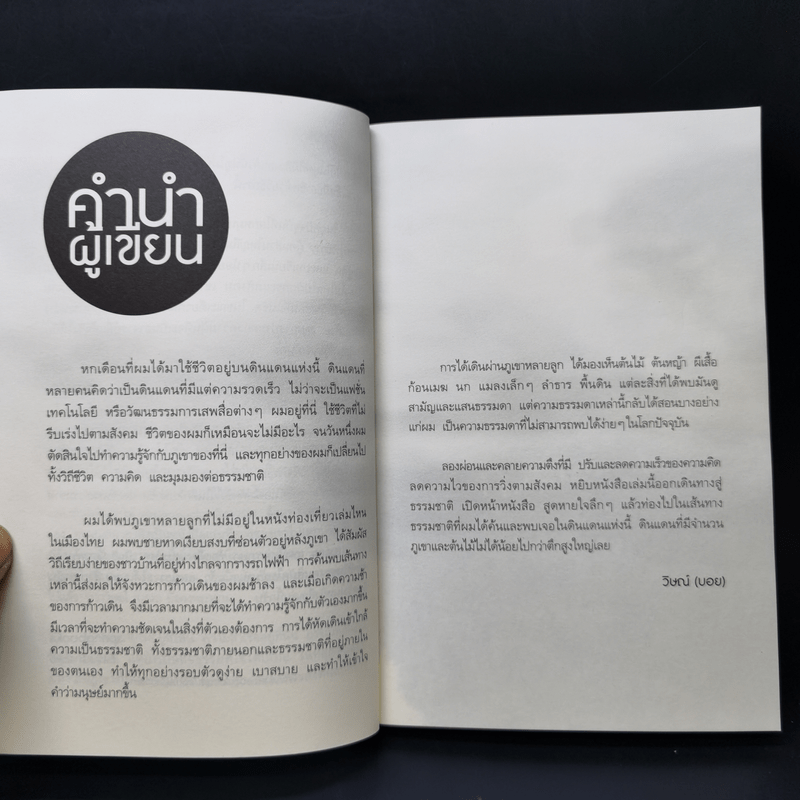 คำนำ
ผู้เขียน
หกเดือนที่ผมได้มาใช้ชีวิตอยู่บนดินแดนแห่งนี้ ดินแดนที่
หลายคนคิดว่าเป็นดินแดนที่มีแต่ความรวดเร็ว ไม่ว่าจะเป็นแฟชั่น
เทคโนโลยี หรือวัฒนธรรมการเสพสื่อต่างๆ ผมอยู่ที่นี่ ใช้ชีวิตที่ไม่
รีบเร่งไปตามสังคม ชีวิตของผมก็เหมือนจะไม่มีอะไร จนวันหนึ่งผม
ตัดสินใจไปทำความรู้จักกับภูเขาของที่นี่ และทุกอย่างของผมก็เปลี่ยนไป
ทั้งวิถีชีวิต ความคิด และมุมมองต่อธรรมชาติ
ผมได้พบภูเขาหลายลูกที่ไม่มีอยู่ในหนังท่องเที่ยวเล่มไหน
ในเมืองไทย ผมพบชายหาดเงียบสงบที่ซ่อนตัวอยู่หลังภูเขา ได้สัมผัส
วิถีเรียบง่ายของชาวบ้านที่อยู่ห่างไกลจากรางรถไฟฟ้า การค้นพบเส้นทาง
เหล่านี้ส่งผลให้จังหวะการก้าวเดินของผมช้าลง และเมื่อเกิดความช้า
ของการก้าวเดิน จึงมีเวลามากมายที่จะได้ทำความรู้จักกับตัวเองมากขึ้น
มีเวลาที่จะทำความชัดเจนในสิ่งที่ตัวเองต้องการ การได้หัดเดินเข้าใกล้
ความเป็นธรรมชาติ ทั้งธรรมชาติภายนอกและธรรมชาติที่อยู่ภายใน
ของตนเอง ทำให้ทุกอย่างรอบตัวดูง่าย เบาสบาย และทำให้เข้าใจ
คำว่ามนุษย์มากขึ้น
การได้เดินผ่านภูเขาหลายลูก ได้มองเห็นต้นไม้ ต้นหญ้า ผีเสื้อ
ก้อนเมฆ นก แมลงเล็กๆ ลำธาร พื้นดิน แต่ละสิ่งที่ได้พบมันดู
สามัญและแสนธรรมดา แต่ความธรรมดาเหล่านี้กลับได้สอนบางอย่าง
แก่ผม เป็นความธรรมดาที่ไม่สามารถพบได้ง่ายๆ ในโลกปัจจุบัน
ลองผ่อนและคลายความตึงที่มี ปรับและลดความเร็วของความคิด
ลดความไวของการวิ่งตามสังคม หยิบหนังสือเล่มนี้ออกเดินทางสู่
ธรรมชาติ เปิดหน้าหนังสือ สูดหายใจลึกๆ แล้วท่องไปในเส้นทาง
ธรรมชาติที่ผมได้ค้นและพบเจอในดินแดนแห่งนี้ ดินแดนที่มีจำนวน
ภูเขาและต้นไม้ไม่ได้น้อยไปกว่าตึกสูงใหญ่เลย
วิษณ์ (บอย)